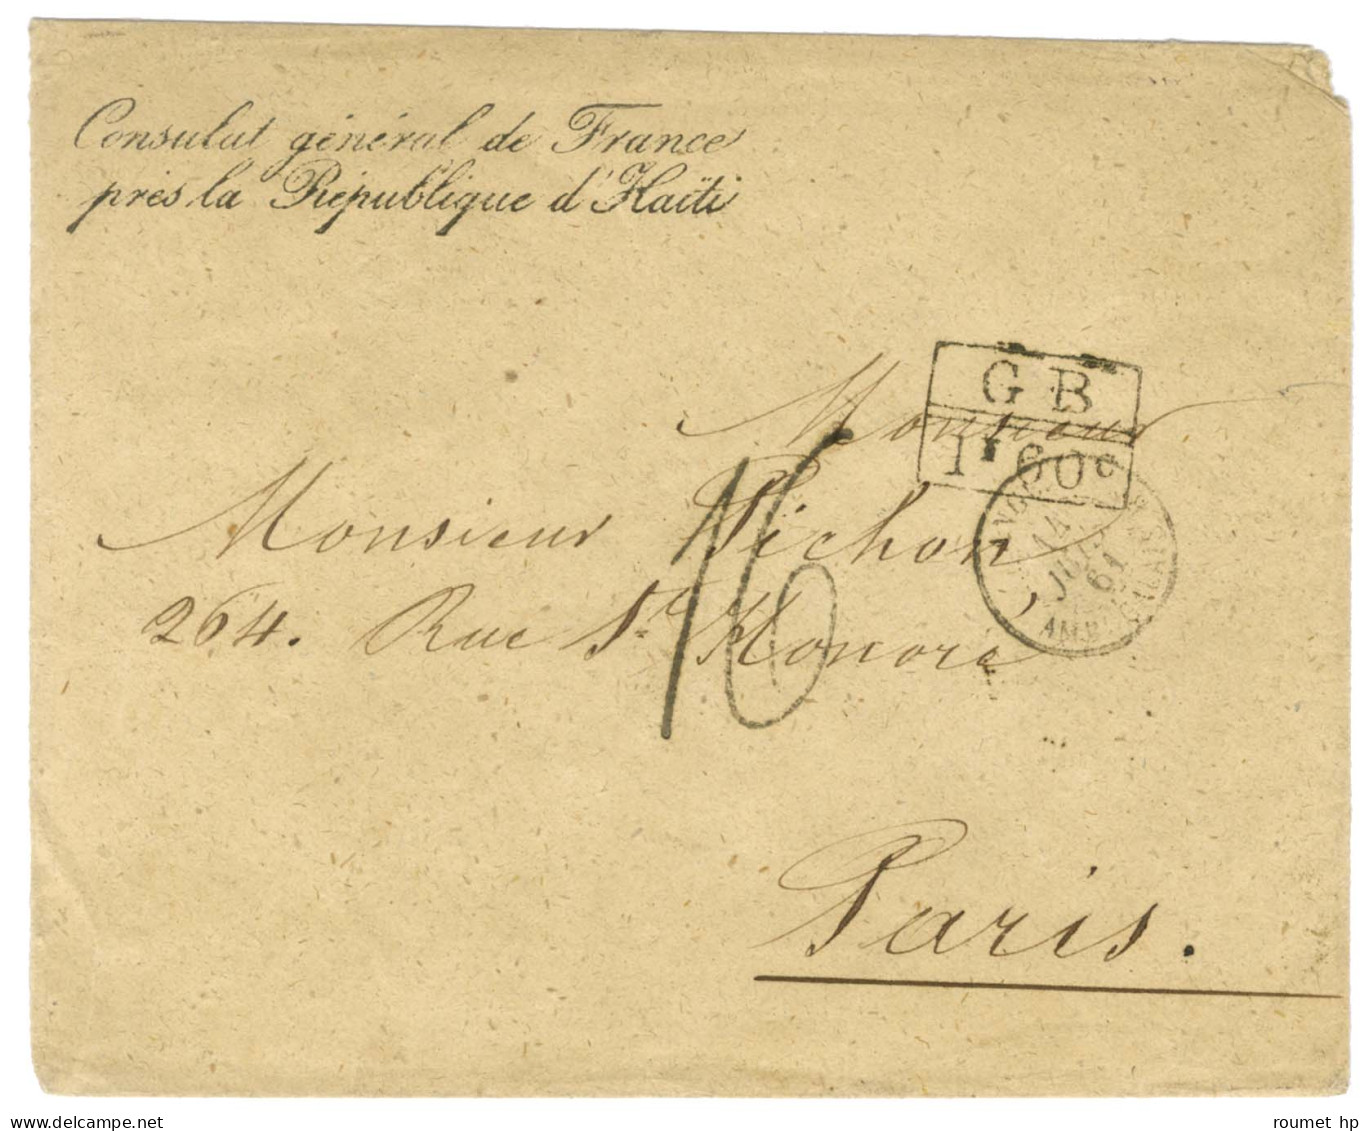 Consulat général de France
près la République d'Haïti
G B
1f 60c
Monsieur
Monsieur Pichon,
264. Rue St. Honoré
16
14
JUIN
61
AMB. CALAIS
Paris.
www.delcampe.net
roumet hp